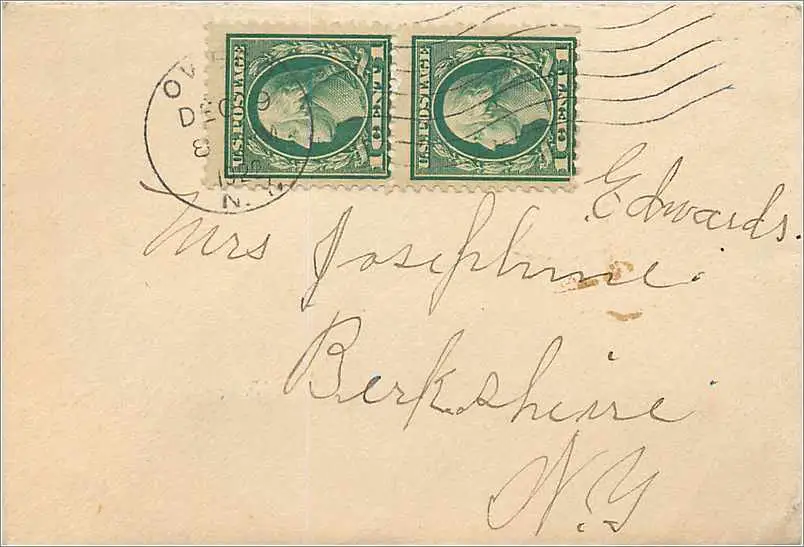 DEC 9
8 A
N.Y.
U.S. POSTAGE
1 CENT 1
U.S. POSTAGE
1 CENT 1
Mrs Josephine Edwards.
Berkshire
N.Y